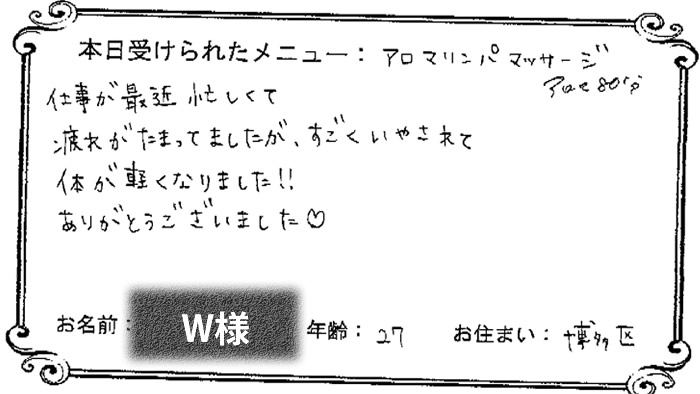 本日受けられたメニュー： アロマリンパマッサージ
アロマ80分
仕事が最近 忙しくて
疲れがたまってましたが、すごくいやされて
体が軽くなりました!!
ありがとうございました♡
お名前： W様 年齢： 27 お住まい： 博多区